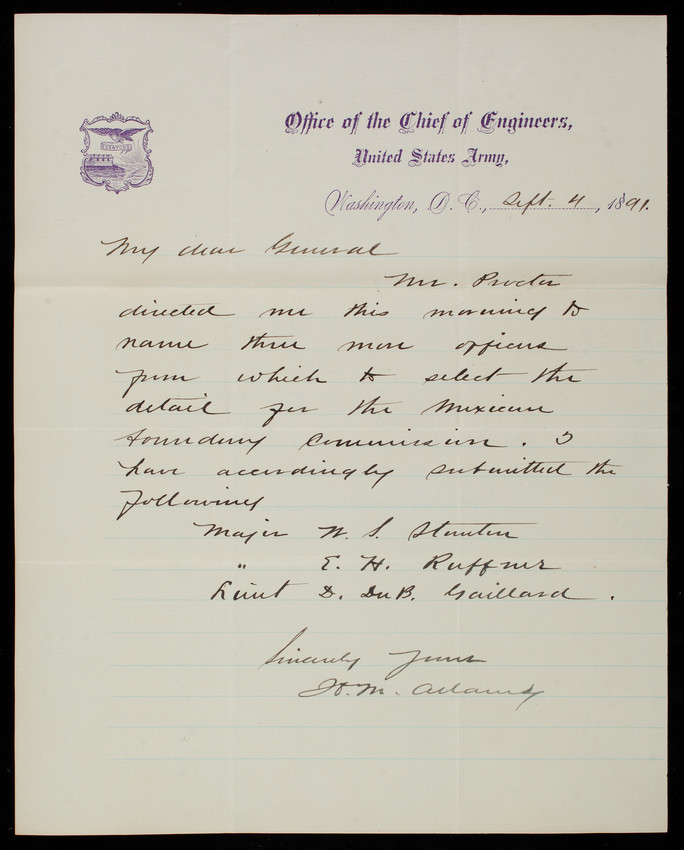 ESSAYONS
Office of the Chief of Engineers,
United States Army,
Washington, D. C., Sept. 4, 1891.
My dear General
Mr. Proctor
directed me this morning to
name three more officers
from which to select the
detail for the Mexican
boundary commission. I
have accordingly submitted the
following
Major W. S. Stanton
" E. H. Ruffner
Lieut D. DuB. Gaillard.
Sincerely Yours
H. M. Adams